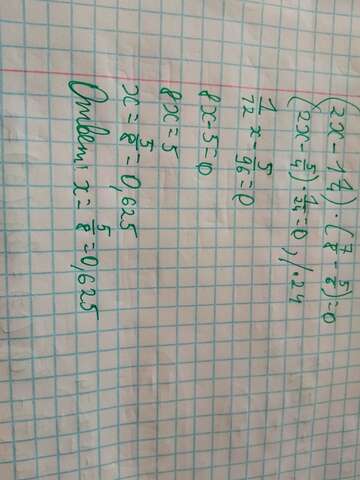 (2x - 1 1/4) · (7/8 - 5/6) = 0
(2x - 5/4) · 1/24 = 0 | · 24
1/12 x - 5/96 = 0
8x - 5 = 0
8x = 5
x = 5/8 = 0,625
Ответ: x = 5/8 = 0,625